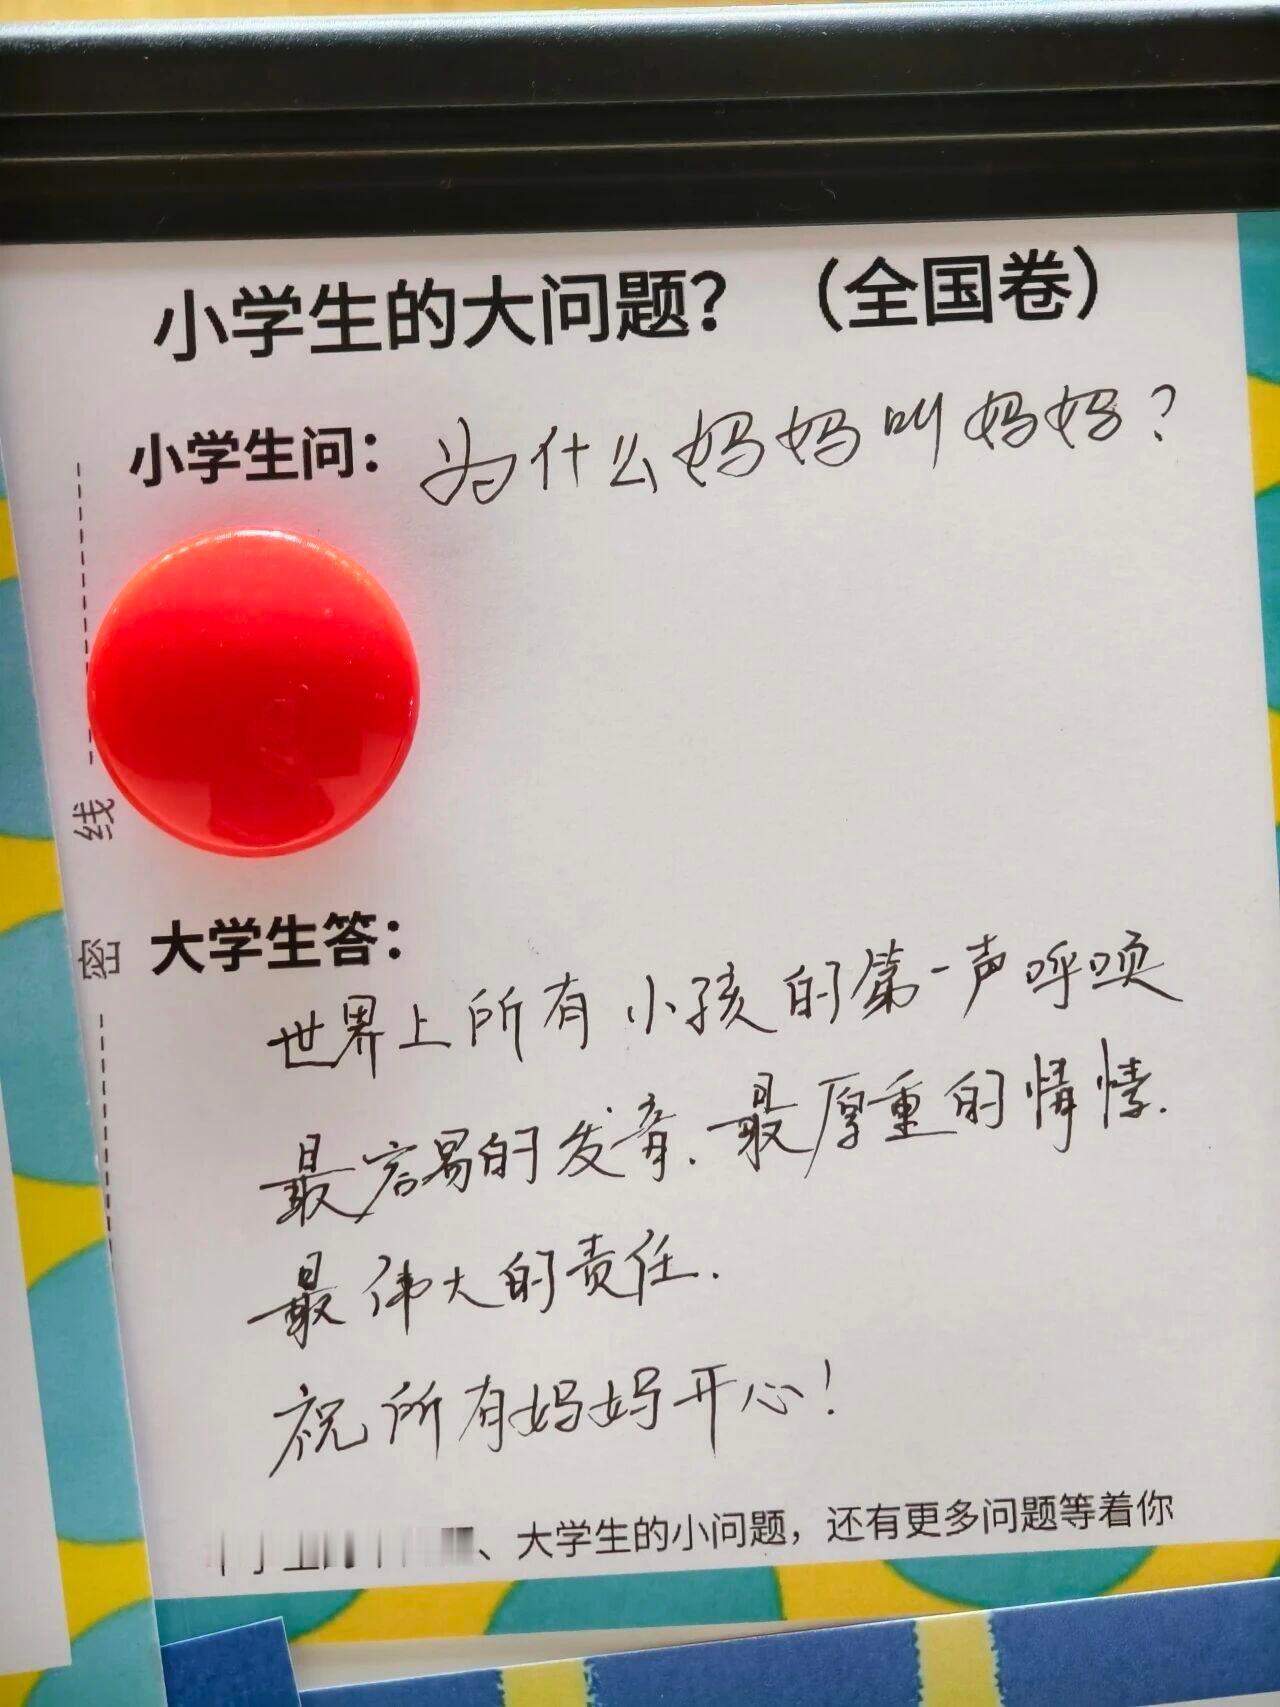 小学生的大问题？（全国卷）
小学生问：为什么妈妈叫妈妈？
线
密
大学生答：
世界上所有小孩的第一声呼唤
最容易的发音.最厚重的情情.
最伟大的责任.
祝所有妈妈开心！
、大学生的小问题，还有更多问题等着你